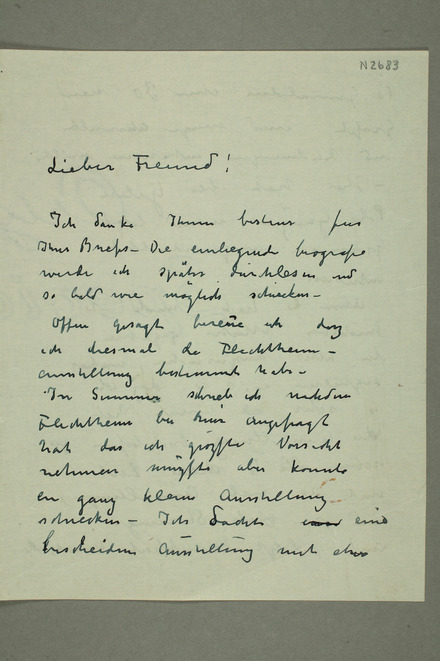 N2683
Lieber Freund!
Ich danke Ihnen bestens für
Ihren Brief – Die einliegende biografie
werde ich später durchlesen und
so bald wie möglich schicken –
Offen gesagt bereue ich dass
ich diesmal die Flechtheim –
ausstellung bestimmt habe –
Im Sommer schrieb ich nachdem
Flechtheim bei mir angefragt
hat das ich größte Vorsicht
nehmen müßte aber konnte
ein ganz kleine Ausstellung
schicken – Ich dachte eine
bescheidene Ausstellung mit